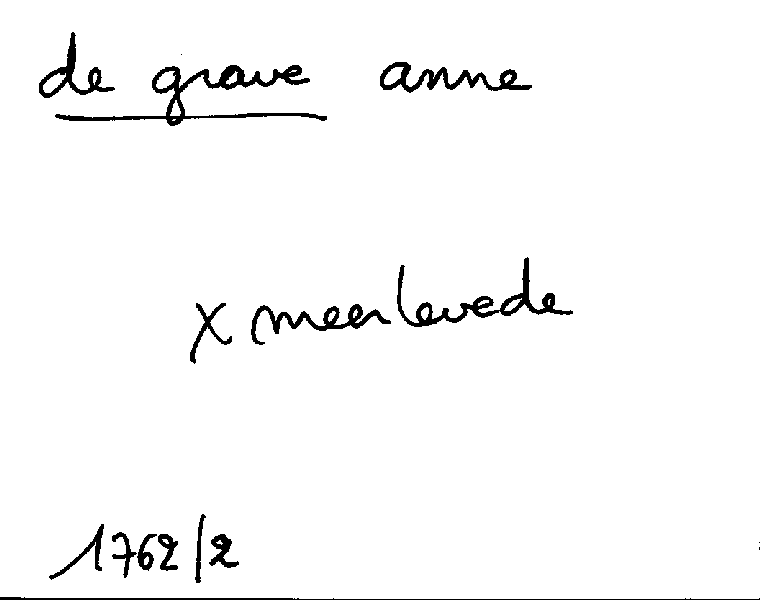 de grave anne
x meerlevede
1762/2